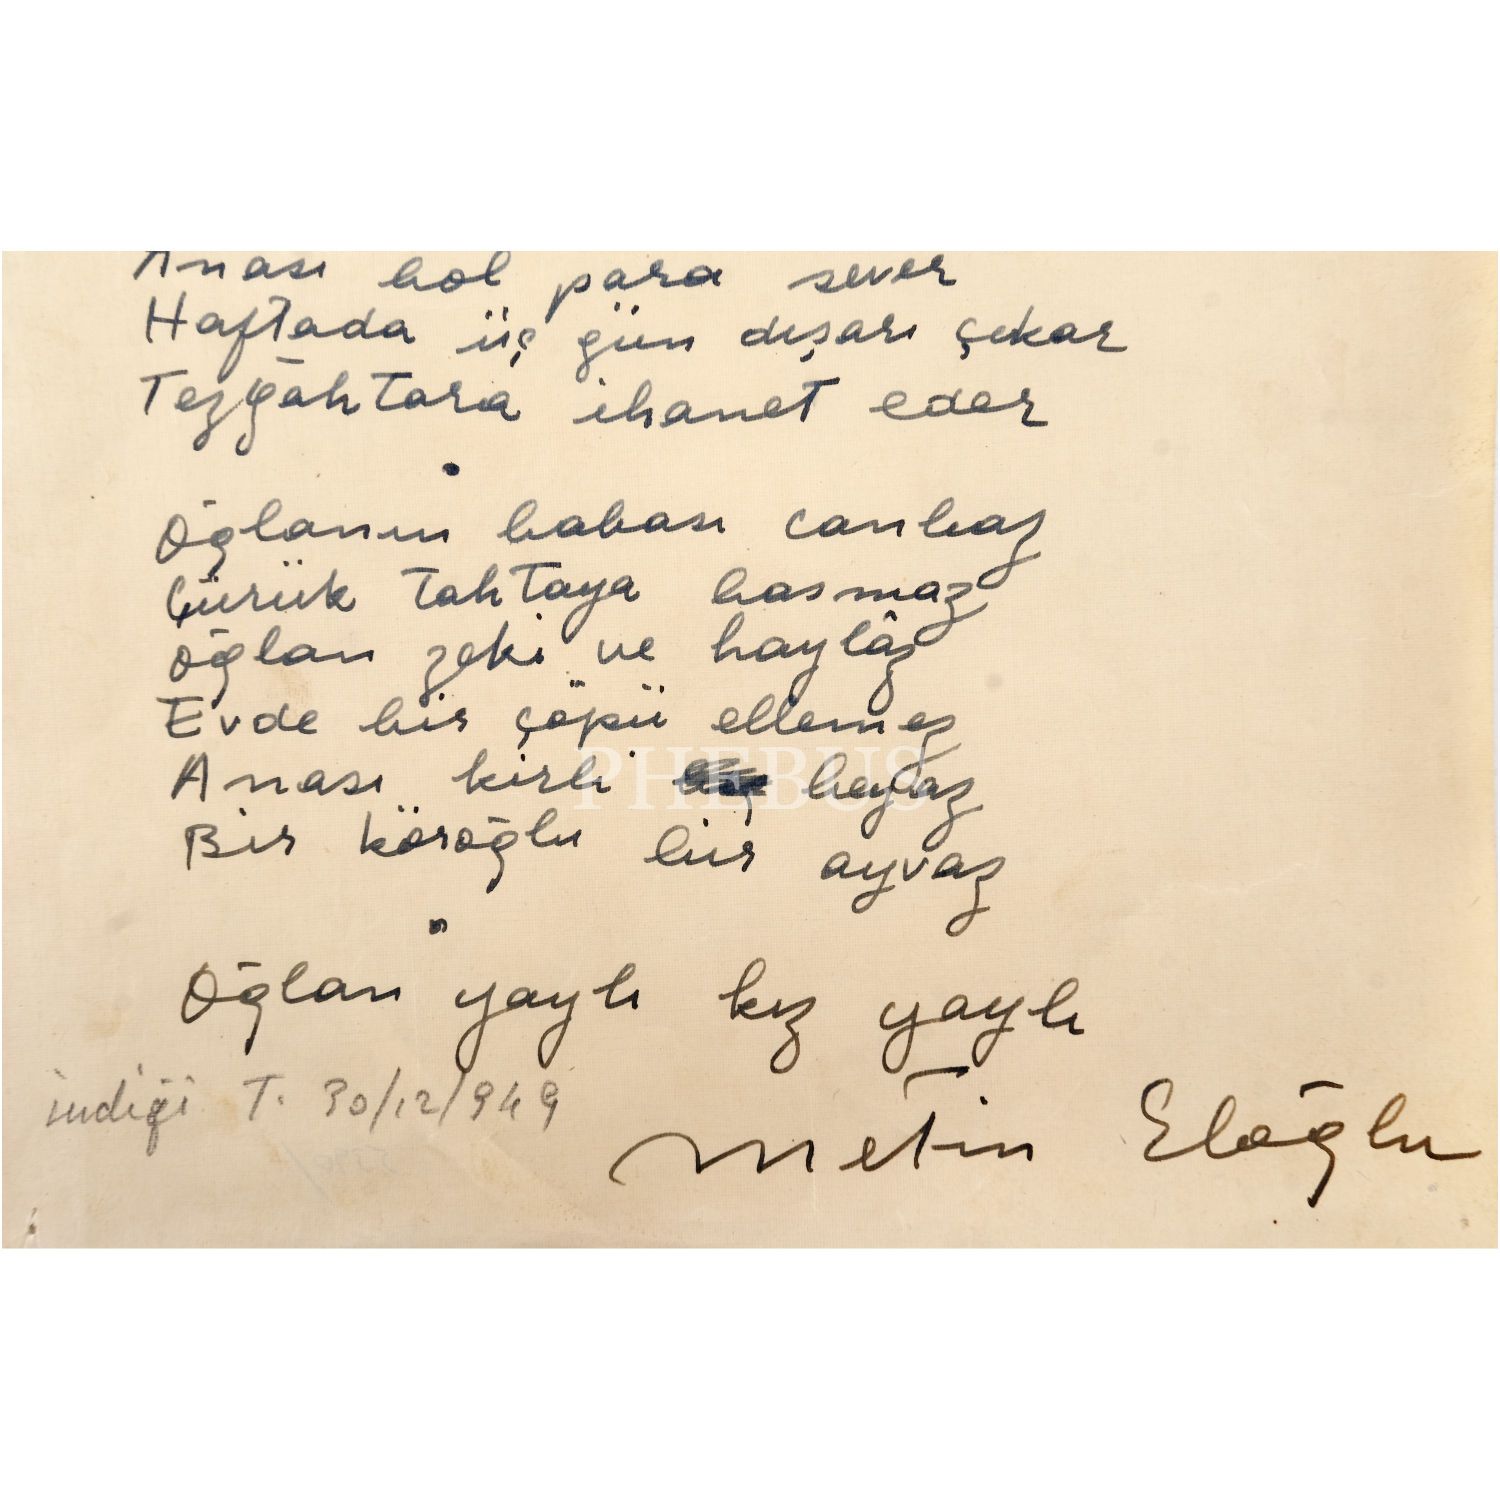 Anası bol para sever
Haftada üç gün dışarı çıkar
Tezgâhtara ihanet eder
Oğlanın babası canbaz
Çürük tahtaya basmaz
Oğlan zeki ve haylâz
Evde bir çöpü ellemez
Anası kirli beyaz
Bir köroğlu bir ayvaz
Oğlan yaylı kız yaylı
indiği T. 30/12/949
Metin Eloğlu
PHEBUS